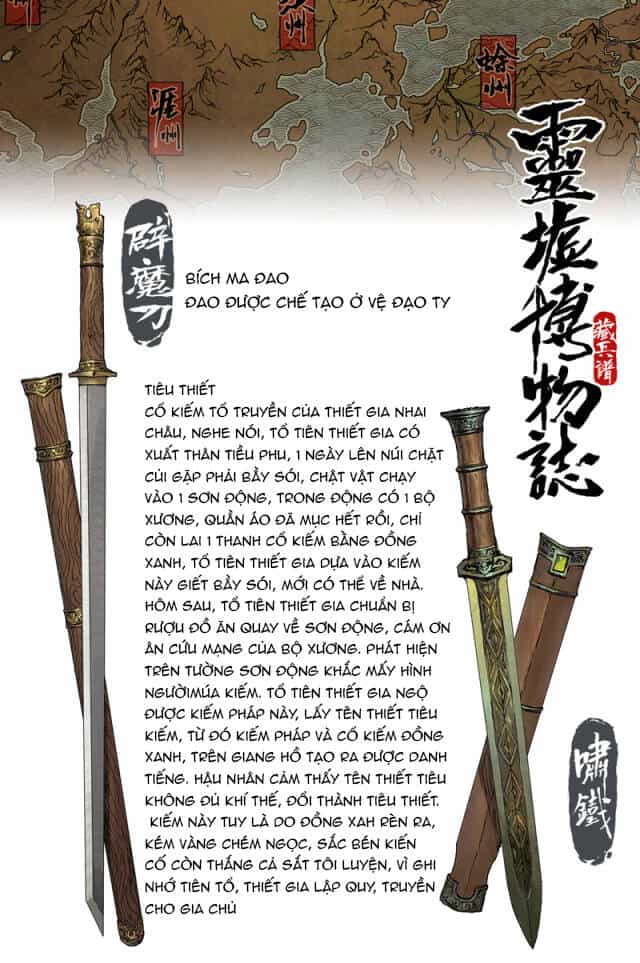 涯州
蜍州
靈墟博物誌
藏兵譜
辟魔刀
BÍCH MA ĐAO
ĐAO ĐƯỢC CHẾ TẠO Ở VỆ ĐẠO TY
TIÊU THIẾT
CỔ KIẾM TỔ TRUYỀN CỦA THIẾT GIA NHAI
CHÂU, NGHE NÓI, TỔ TIÊN THIẾT GIA CÓ
XUẤT THÂN TIỀU PHU, 1 NGÀY LÊN NÚI CHẶT
CỦI GẶP PHẢI BẦY SÓI, CHẬT VẬT CHẠY
VÀO 1 SƠN ĐỘNG, TRONG ĐỘNG CÓ 1 BỘ
XƯƠNG, QUẦN ÁO ĐÃ MỤC HẾT RỒI, CHỈ
CÒN LAI 1 THANH CỔ KIẾM BẰNG ĐỒNG
XANH, TỔ TIÊN THIẾT GIA DỰA VÀO KIẾM
NÀY GIẾT BẦY SÓI, MỚI CÓ THỂ VỀ NHÀ.
HÔM SAU, TỔ TIÊN THIẾT GIA CHUẨN BỊ
RƯỢU ĐỒ ĂN QUAY VỀ SƠN ĐỘNG, CÁM ƠN
ÂN CỨU MẠNG CỦA BỘ XƯƠNG. PHÁT HIỆN
TRÊN TƯỜNG SƠN ĐỘNG KHẮC MẤY HÌNH
NGƯỜI!MÚA KIẾM. TỔ TIÊN THIẾT GIA NGỘ
ĐƯỢC KIẾM PHÁP NÀY, LẤY TÊN THIẾT TIÊU
KIẾM, TỪ ĐÓ KIẾM PHÁP VÀ CỔ KIẾM ĐỒNG
XANH, TRÊN GIANG HỒ TẠO RA ĐƯỢC DANH
TIẾNG. HẬU NHÂN CẢM THẤY TÊN THIẾT TIÊU
KHÔNG ĐỦ KHÍ THẾ, ĐỔI THÀNH TIÊU THIẾT.
KIẾM NÀY TUY LÀ DO ĐỒNG XAH RÈN RA,
KÉM VÀNG CHÉM NGỌC, SẮC BÉN KIẾN
CỐ CÒN THẮNG CẢ SẮT TÔI LUYỆN, VÌ GHI
NHỚ TIÊN TỔ, THIẾT GIA LẬP QUY, TRUYỀN
CHO GIA CHỦ
嘯鐵